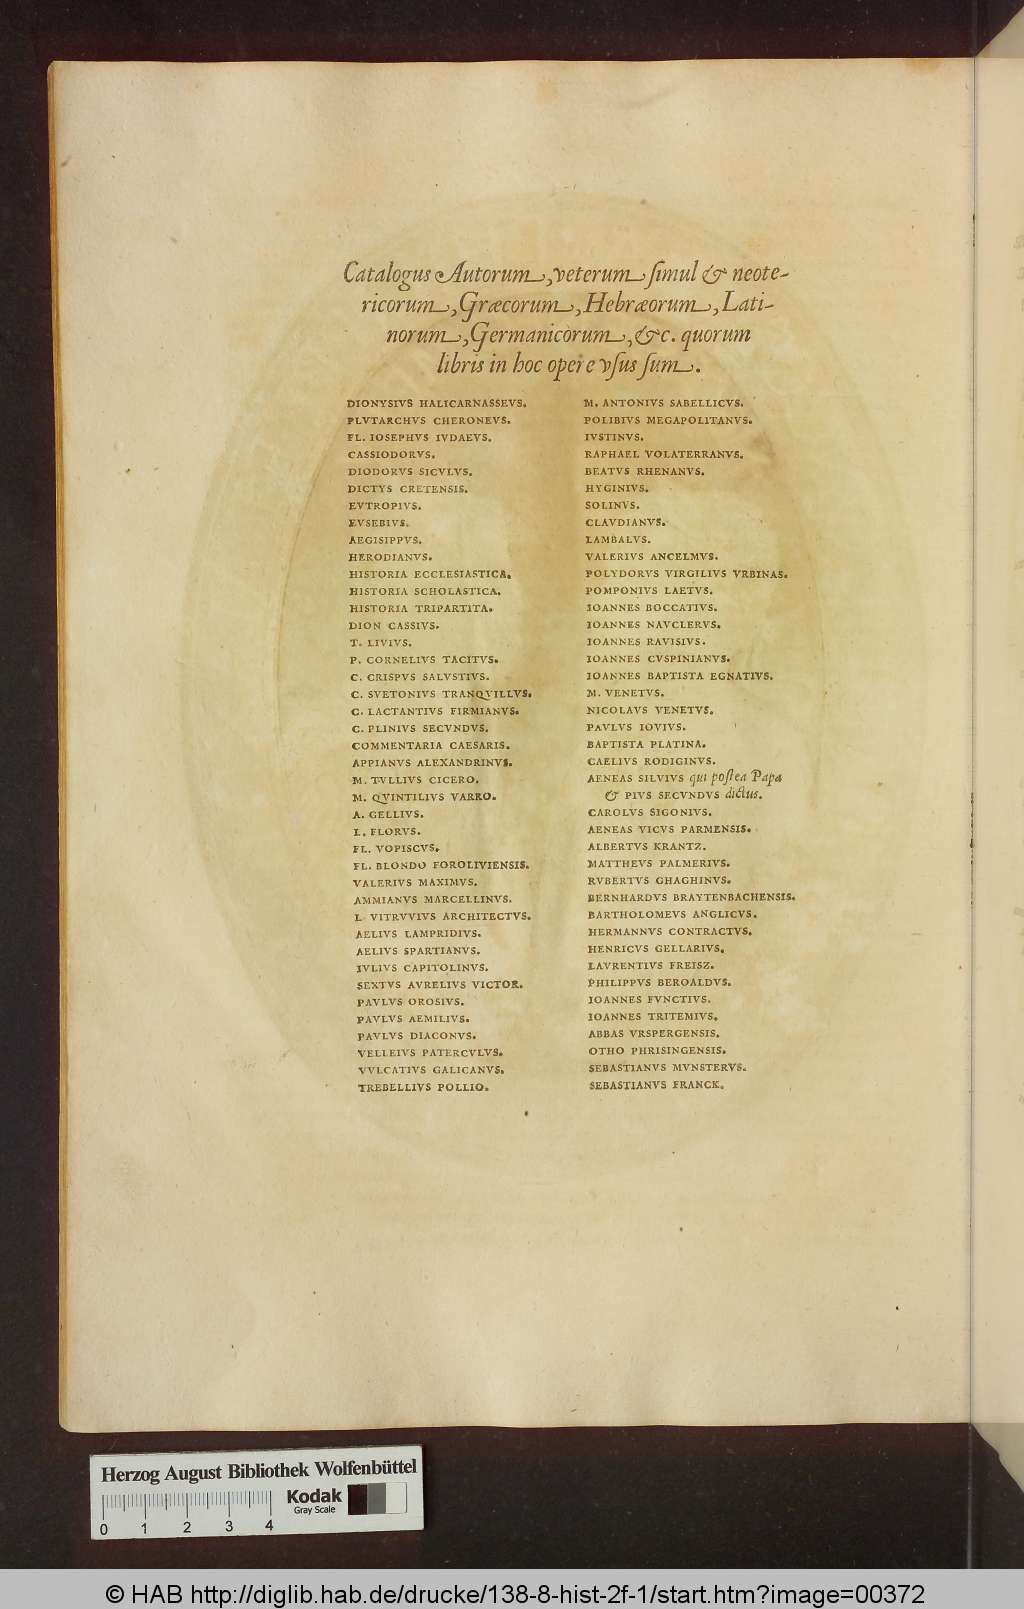 Catalogus Autorum, veterum simul & neote-
ricorum, Græcorum, Hebræorum, Lati-
norum, Germanicorum, &c. quorum
libris in hoc opere vsus sum.
DIONYSIVS HALICARNASSEVS.
PLVTARCHVS CHERONEVS.
FL. IOSEPHVS IVDAEVS.
CASSIODORVS.
DIODORVS SICVLVS.
DICTYS CRETENSIS.
EVTROPIVS.
EVSEBIVS.
AEGISIPPVS.
HERODIANVS.
HISTORIA ECCLESIASTICA.
HISTORIA SCHOLASTICA.
HISTORIA TRIPARTITA.
DION CASSIVS.
T. LIVIVS.
P. CORNELIVS TACITVS.
C. CRISPVS SALVSTIVS.
C. SVETONIVS TRANQVILLVS.
C. LACTANTIVS FIRMIANVS.
C. PLINIVS SECVNDVS.
COMMENTARIA CAESARIS.
APPIANVS ALEXANDRINVS.
M. TVLLIVS CICERO.
M. QVINTILIVS VARRO.
A. GELLIVS.
L. FLORVS.
FL. VOPISCVS.
FL. BLONDO FOROLIVIENSIS.
VALERIVS MAXIMVS.
AMMIANVS MARCELLINVS.
L VITRVVIVS ARCHITECTVS.
AELIVS LAMPRIDIVS.
AELIVS SPARTIANVS.
IVLIVS CAPITOLINVS.
SEXTVS AVRELIVS VICTOR.
PAVLVS OROSIVS.
PAVLVS AEMILIVS.
PAVLVS DIACONVS.
VELLEIVS PATERCVLVS.
VVLCATIVS GALICANVS.
TREBELLIVS POLLIO.
M. ANTONIVS SABELLICVS.
POLIBIVS MEGAPOLITANVS.
IVSTINVS.
RAPHAEL VOLATERRANVS.
BEATVS RHENANVS.
HYGINIVS.
SOLINVS.
CLAVDIANVS.
LAMBALVS.
VALERIVS ANCELMVS.
POLYDORVS VIRGILIVS VRBINAS.
POMPONIVS LAETVS.
IOANNES BOCCATIVS.
IOANNES NAVCLERVS.
IOANNES RAVISIVS.
IOANNES CVSPINIANVS.
IOANNES BAPTISTA EGNATIVS.
M. VENETVS.
NICOLAVS VENETVS.
PAVLVS IOVIVS.
BAPTISTA PLATINA.
CAELIVS RODIGINVS.
AENEAS SILVIVS qui postea Papa
& PIVS SECVNDVS dictus.
CAROLVS SIGONIVS.
AENEAS VICVS PARMENSIS.
ALBERTVS KRANTZ.
MATTHEVS PALMERIVS.
RVBERTVS GHAGHINVS.
BERNHARDVS BRAYTENBACHENSIS.
BARTHOLOMEVS ANGLICVS.
HERMANNVS CONTRACTVS.
HENRICVS GELLARIVS.
LAVRENTIVS FREISZ.
PHILIPPVS BEROALDVS.
IOANNES FVNCTIVS.
IOANNES TRITEMIVS.
ABBAS VRSPERGENSIS.
OTHO PHRISINGENSIS.
SEBASTIANVS MVNSTERVS.
SEBASTIANVS FRANCK.
Herzog August Bibliothek Wolfenbüttel
Kodak
Gray Scale
0 1 2 3 4
© HAB http://diglib.hab.de/drucke/138-8-hist-2f-1/start.htm?image=00372